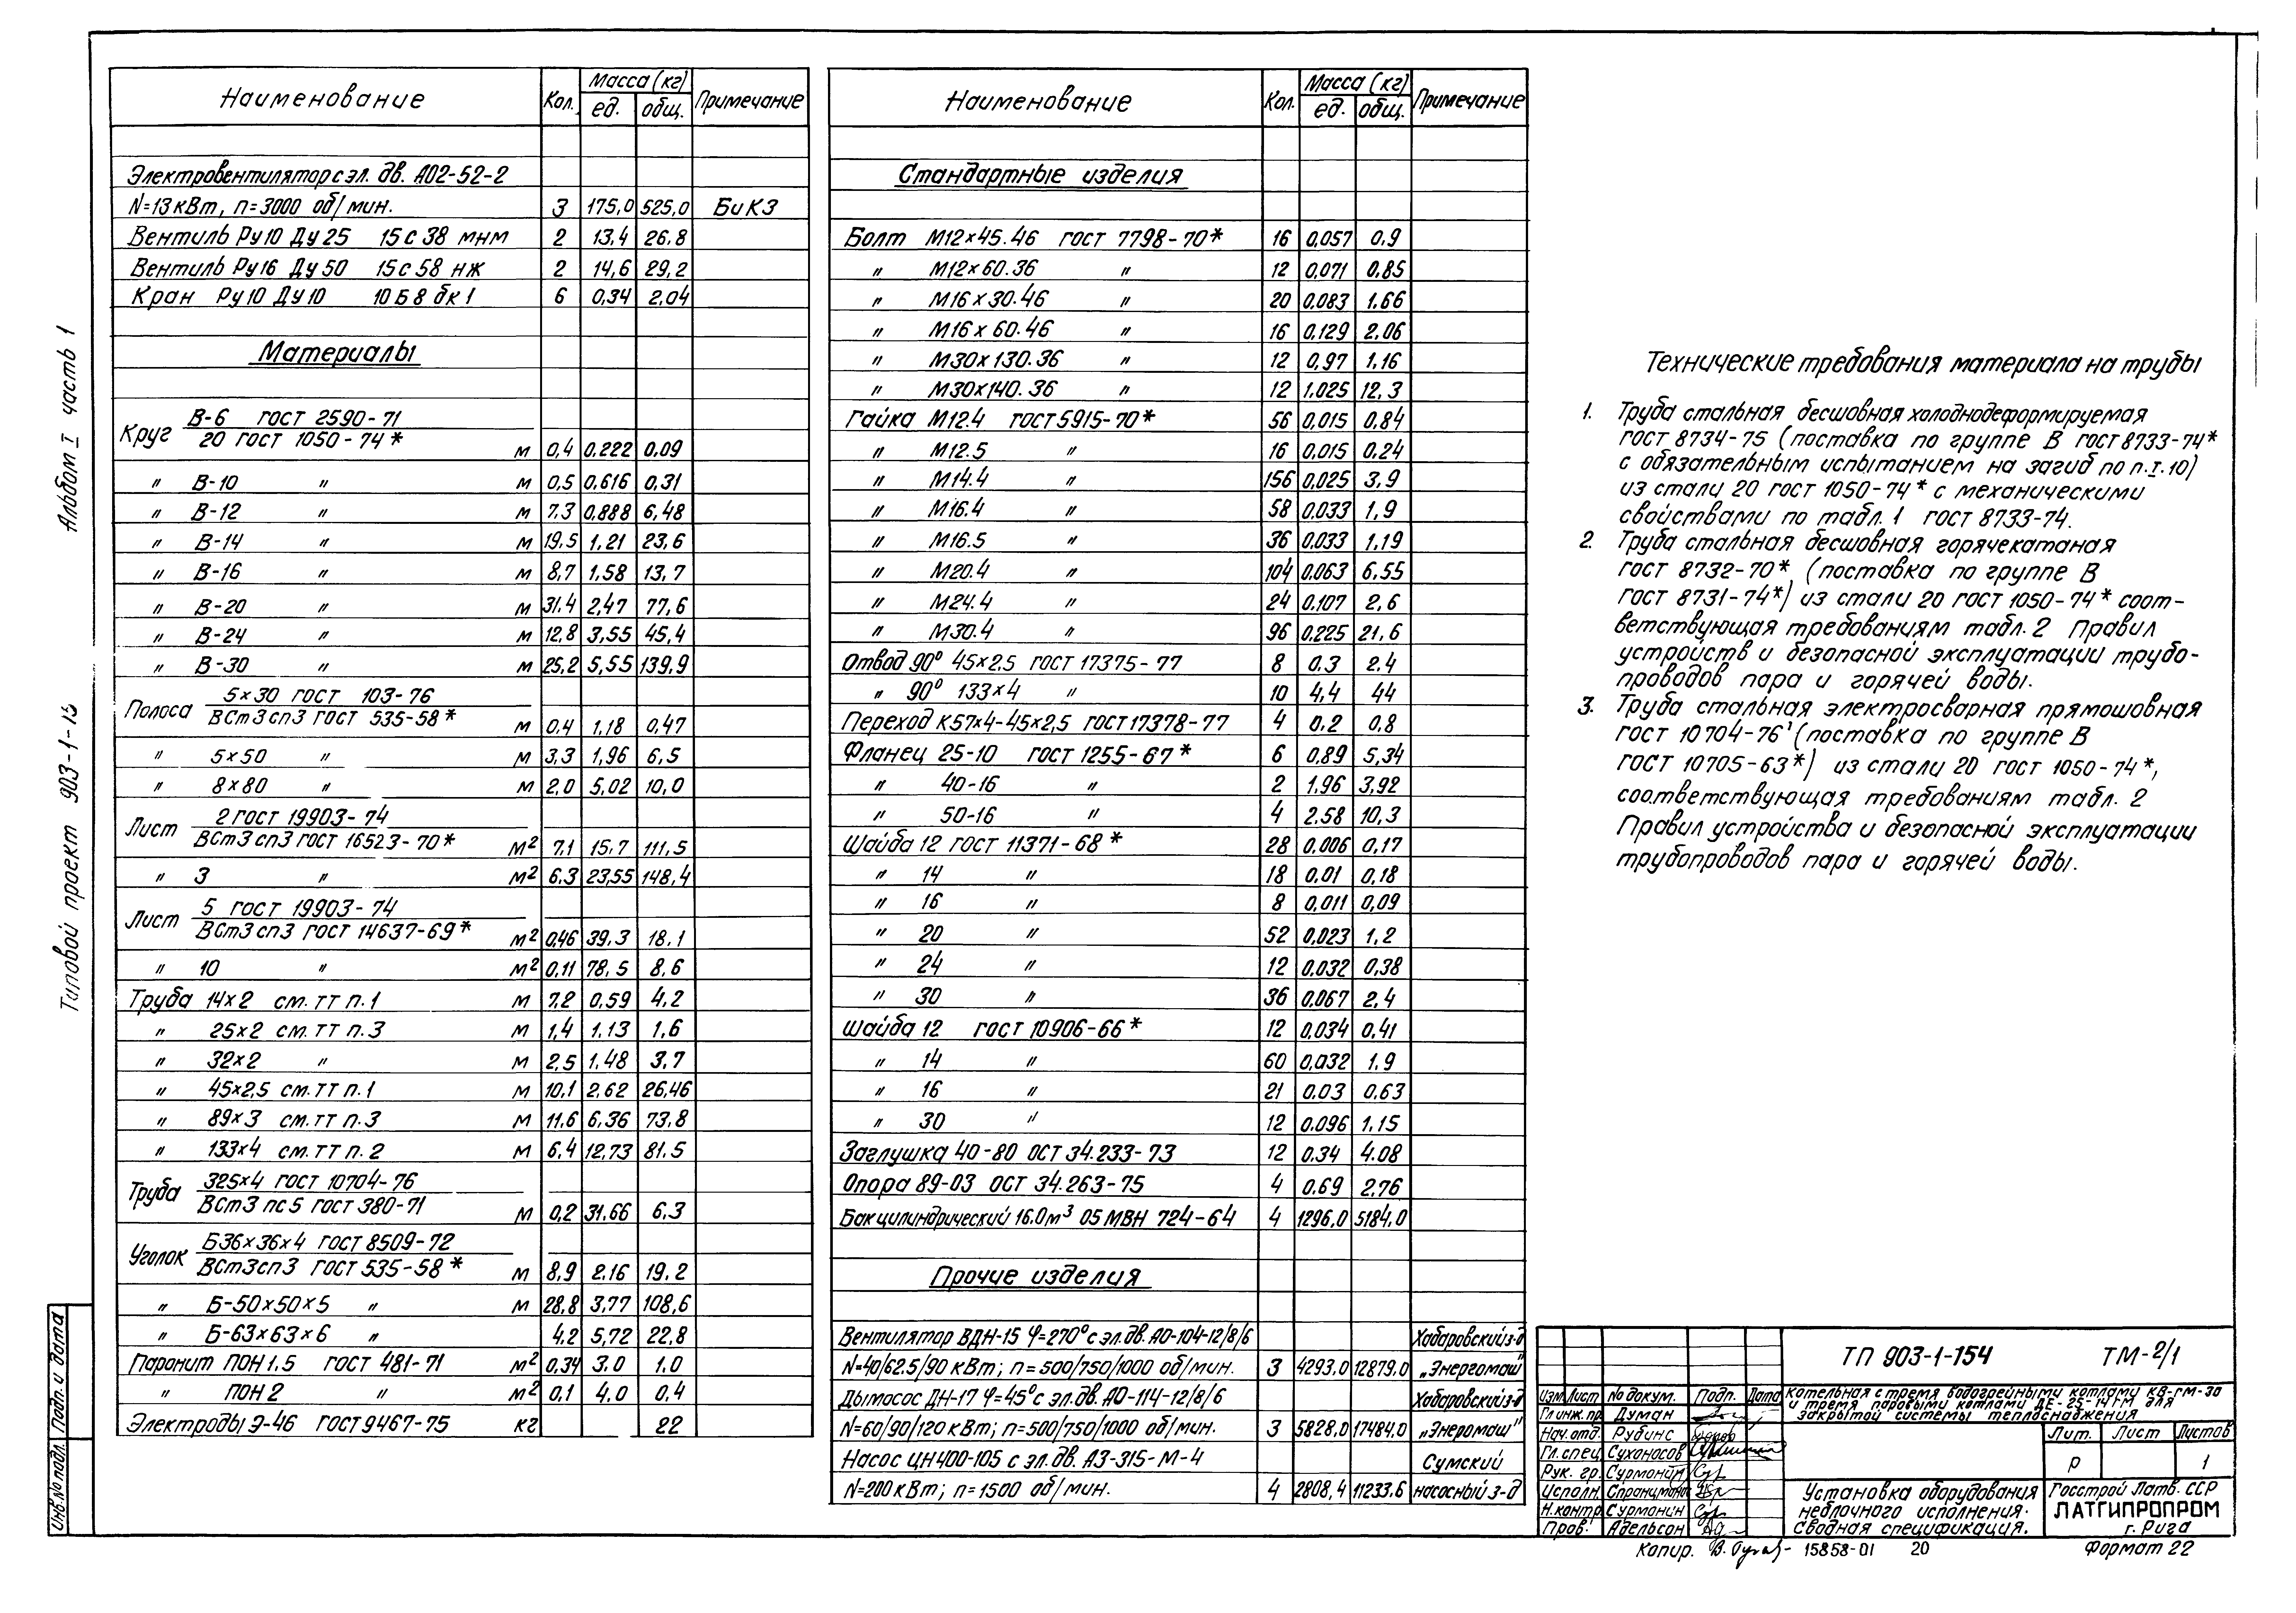 Альбом I часть 1
Типовой проект 903-1-15
Инв.№ подл. Подп. и дата
Наименование Кол. Масса (кг) Примечание
ед. общ.
Электровентилятор с эл. дв. А02-52-2
N=13 кВт, n=3000 об/мин. 3 175,0 525,0 БиКЗ
Вентиль Ру10 Ду25 15с38 мнм 2 13,4 26,8
Вентиль Ру16 Ду50 15с58 нж 2 14,6 29,2
Кран Ру10 Ду10 10Б8 бк1 6 0,34 2,04
Материалы
Круг В-6 ГОСТ 2590-71
20 ГОСТ 1050-74* м 0,4 0,222 0,09
" В-10 " м 0,5 0,616 0,31
" В-12 " м 7,3 0,888 6,48
" В-14 " м 19,5 1,21 23,6
" В-16 " м 8,7 1,58 13,7
" В-20 " м 31,4 2,47 77,6
" В-24 " м 12,8 3,55 45,4
" В-30 " м 25,2 5,55 139,9
Полоса 5×30 ГОСТ 103-76
ВСт3сп3 ГОСТ 535-58* м 0,4 1,18 0,47
" 5×50 " м 3,3 1,96 6,5
" 8×80 " м 2,0 5,02 10,0
Лист 2 ГОСТ 19903-74
ВСт3сп3 ГОСТ 16523-70* м² 7,1 15,7 111,5
" 3 " м² 6,3 23,55 148,4
Лист 5 ГОСТ 19903-74
ВСт3сп3 ГОСТ 14637-69* м² 0,46 39,3 18,1
" 10 " м² 0,11 78,5 8,6
Труба 14×2 см. ТТ п.1 м 7,2 0,59 4,2
" 25×2 см. ТТ п.3 м 1,4 1,13 1,6
" 32×2 " м 2,5 1,48 3,7
" 45×2,5 см. ТТ п.1 м 10,1 2,62 26,46
" 89×3 см. ТТ п.3 м 11,6 6,36 73,8
" 133×4 см. ТТ п.2 м 6,4 12,73 81,5
Труба 325×4 ГОСТ 10704-76
ВСт3пс5 ГОСТ 380-71 м 0,2 31,66 6,3
Уголок Б36×36×4 ГОСТ 8509-72
ВСт3сп3 ГОСТ 535-58* м 8,9 2,16 19,2
" Б-50×50×5 " м 28,8 3,77 108,6
" Б-63×63×6 " 4,2 5,72 22,8
Паронит ПОН1,5 ГОСТ 481-71 м² 0,34 3,0 1,0
" ПОН2 " м² 0,1 4,0 0,4
Электроды Э-46 ГОСТ 9467-75 кг 22
Наименование Кол. Масса (кг) Примечание
ед. общ.
Стандартные изделия
Болт М12×45.46 ГОСТ 7798-70* 16 0,057 0,9
" М12×60.36 " 12 0,071 0,85
" М16×30.46 " 20 0,083 1,66
" М16×60.46 " 16 0,129 2,06
" М30×130.36 " 12 0,97 1,16
" М30×140.36 " 12 1,025 12,3
Гайка М12.4 ГОСТ 5915-70* 56 0,015 0,84
" М12.5 " 16 0,015 0,24
" М14.4 " 156 0,025 3,9
" М16.4 " 58 0,033 1,9
" М16.5 " 36 0,033 1,19
" М20.4 " 104 0,063 6,55
" М24.4 " 24 0,107 2,6
" М30.4 " 96 0,225 21,6
Отвод 90° 45×2,5 ГОСТ 17375-77 8 0,3 2,4
" 90° 133×4 " 10 4,4 44
Переход К57×4-45×2,5 ГОСТ 17378-77 4 0,2 0,8
Фланец 25-10 ГОСТ 1255-67* 6 0,89 5,34
" 40-16 " 2 1,96 3,92
" 50-16 " 4 2,58 10,3
Шайба 12 ГОСТ 11371-68* 28 0,006 0,17
" 14 " 18 0,01 0,18
" 16 " 8 0,011 0,09
" 20 " 52 0,023 1,2
" 24 " 12 0,032 0,38
" 30 " 36 0,067 2,4
Шайба 12 ГОСТ 10906-66* 12 0,034 0,41
" 14 " 60 0,032 1,9
" 16 " 21 0,03 0,63
" 30 " 12 0,096 1,15
Заглушка 40-80 ОСТ 34.233-73 12 0,34 4,08
Опора 89-03 ОСТ 34.263-75 4 0,69 2,76
Бак цилиндрический 16.0м³ 05 МВН 724-64 4 1296,0 5184,0
Прочие изделия
Вентилятор ВДН-15 φ=270° с эл.дв. АО-104-12/8/6 Хабаровский з-д
N=40/62.5/90 кВт; n=500/750/1000 об/мин. 3 4293,0 12879,0 „Энергомаш"
Дымосос ДН-17 φ=45° с эл.дв. АО-114-12/8/6 Хабаровский з-д
N=60/90/120 кВт; n=500/750/1000 об/мин. 3 5828,0 17484,0 „Энеромаш"
Насос ЦН400-105 с эл.дв. АЗ-315-М-4 Сумский
N=200 кВт; n=1500 об/мин. 4 2808,4 11233,6 насосный з-д
Технические требования материала на трубы
1. Труба стальная бесшовная холоднодеформируемая
ГОСТ 8734-75 (поставка по группе В ГОСТ 8733-74*
с обязательным испытанием на загиб по п.I.10)
из стали 20 ГОСТ 1050-74* с механическими
свойствами по табл.1 ГОСТ 8733-74.
2. Труба стальная бесшовная горячекатаная
ГОСТ 8732-70* (поставка по группе В
ГОСТ 8731-74*) из стали 20 ГОСТ 1050-74* соот-
ветствующая требованиям табл.2 Правил
устройств и безопасной эксплуатации трубо-
проводов пара и горячей воды.
3. Труба стальная электросварная прямошовная
ГОСТ 10704-76 (поставка по группе В
ГОСТ 10705-63*) из стали 20 ГОСТ 1050-74*,
соответствующая требованиям табл. 2
Правил устройства и безопасной эксплуатации
трубопроводов пара и горячей воды.
ТП 903-1-154 ТМ-2/1
Изм Лист № докум. Подп. Дата
Котельная с тремя водогрейными котлами КВ-ГМ-30
и тремя паровыми котлами ДЕ-25-14ГМ для
закрытой системы теплоснабжения
Гл инж. пр. Думан
Нач. отд. Рубинс
Гл. спец. Суханосов
Рук. гр. Сурмонин
Исполн.
Н.контр. Сурмонин
Пров. Адельсон
Лит. Лист Листов
Р 1
Установка оборудования
неблочного исполнения.
Сводная спецификация.
Госстрой Латв. ССР
ЛАТГИПРОПРОМ
г. Рига
Копир. 15858-01 20 Формат 22